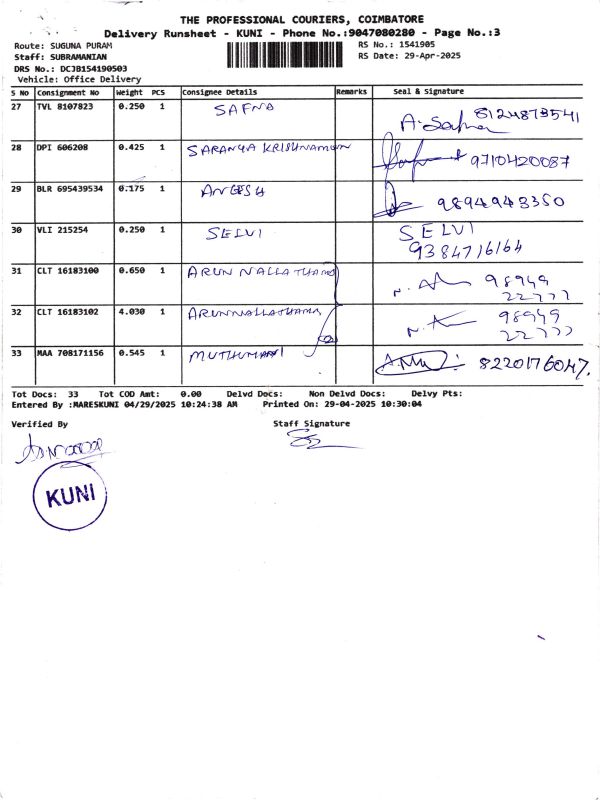 THE PROFESSIONAL COURIERS, COIMBATORE
Delivery Runsheet - KUNI - Phone No.:9047080280 - Page No.:3
Route: SUGUNA PURAM RS No.: 1541905
Staff: SUBRAMANIAN RS Date: 29-Apr-2025
DRS No.: DCJB154190503
Vehicle: Office Delivery
S No Consignment No Weight PCS Consignee Details Remarks Seal & Signature
27 TVL 8107823 0.250 1 SAFNA A. Safna 8124873541
28 DPI 606208 0.425 1 SARANYA KRISHNAMOON 9710420087
29 BLR 695439534 0.175 1 ANGESH 9894943350
30 VLI 215254 0.250 1 SELVI SELVI
9384716164
31 CLT 16183100 0.650 1 ARUN NALLATHAMB 98949
22777
32 CLT 16183102 4.030 1 ARUNNALLATHAMB 98949
22777
33 MAA 708171156 0.545 1 MUTHUMANI 8220176047.
Tot Docs: 33 Tot COD Amt: 0.00 Delvd Docs: Non Delvd Docs: Delvy Pts:
Entered By :MARESKUNI 04/29/2025 10:24:38 AM Printed On: 29-04-2025 10:30:04
Verified By Staff Signature
KUNI